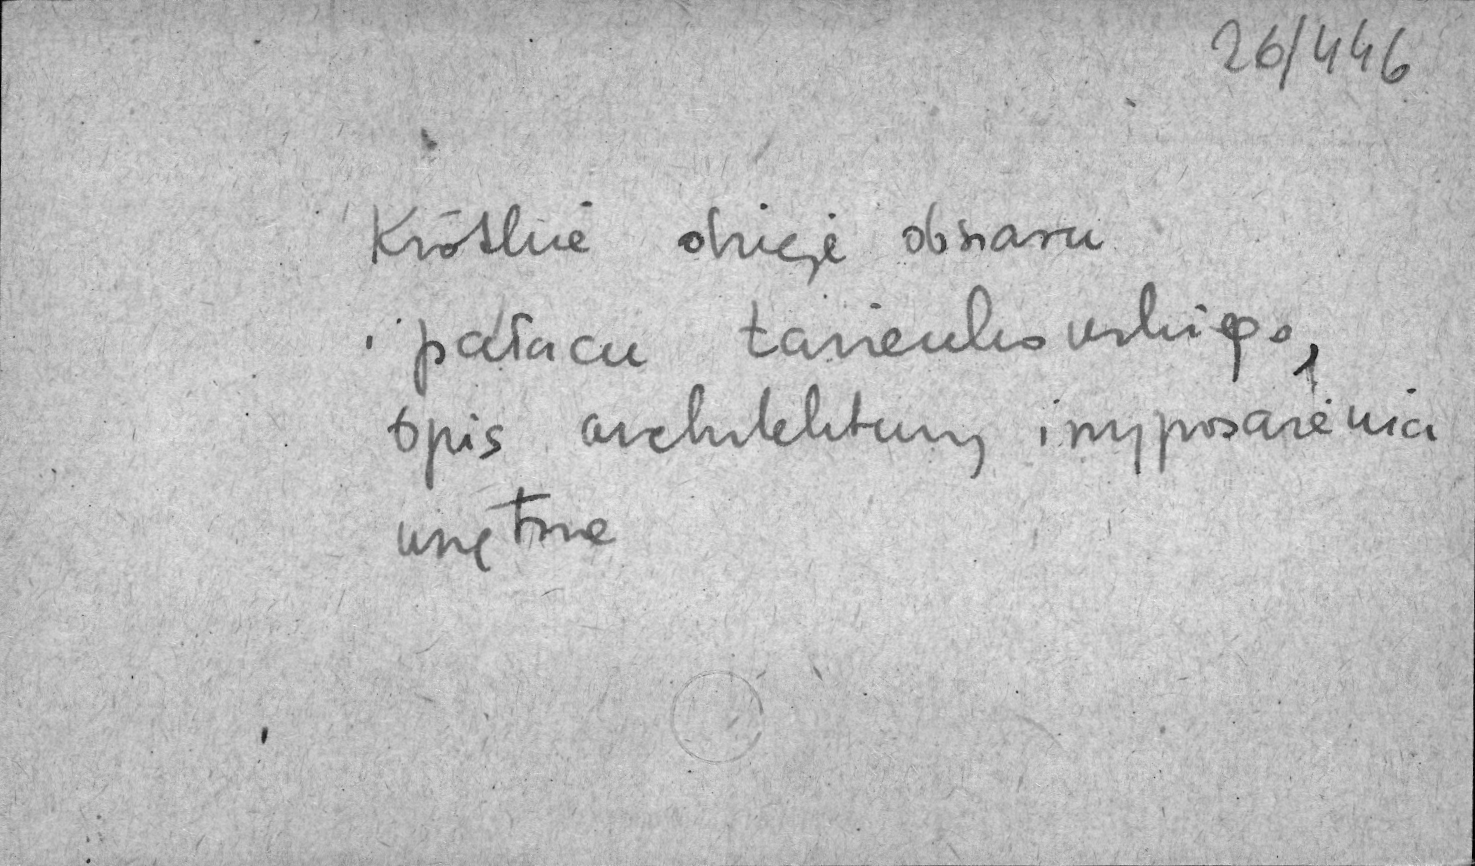 26/446
Krótkie dzieje obszaru
i pałacu Łazienkowskiego,
opis architektury i wyposażenia
wnętrz